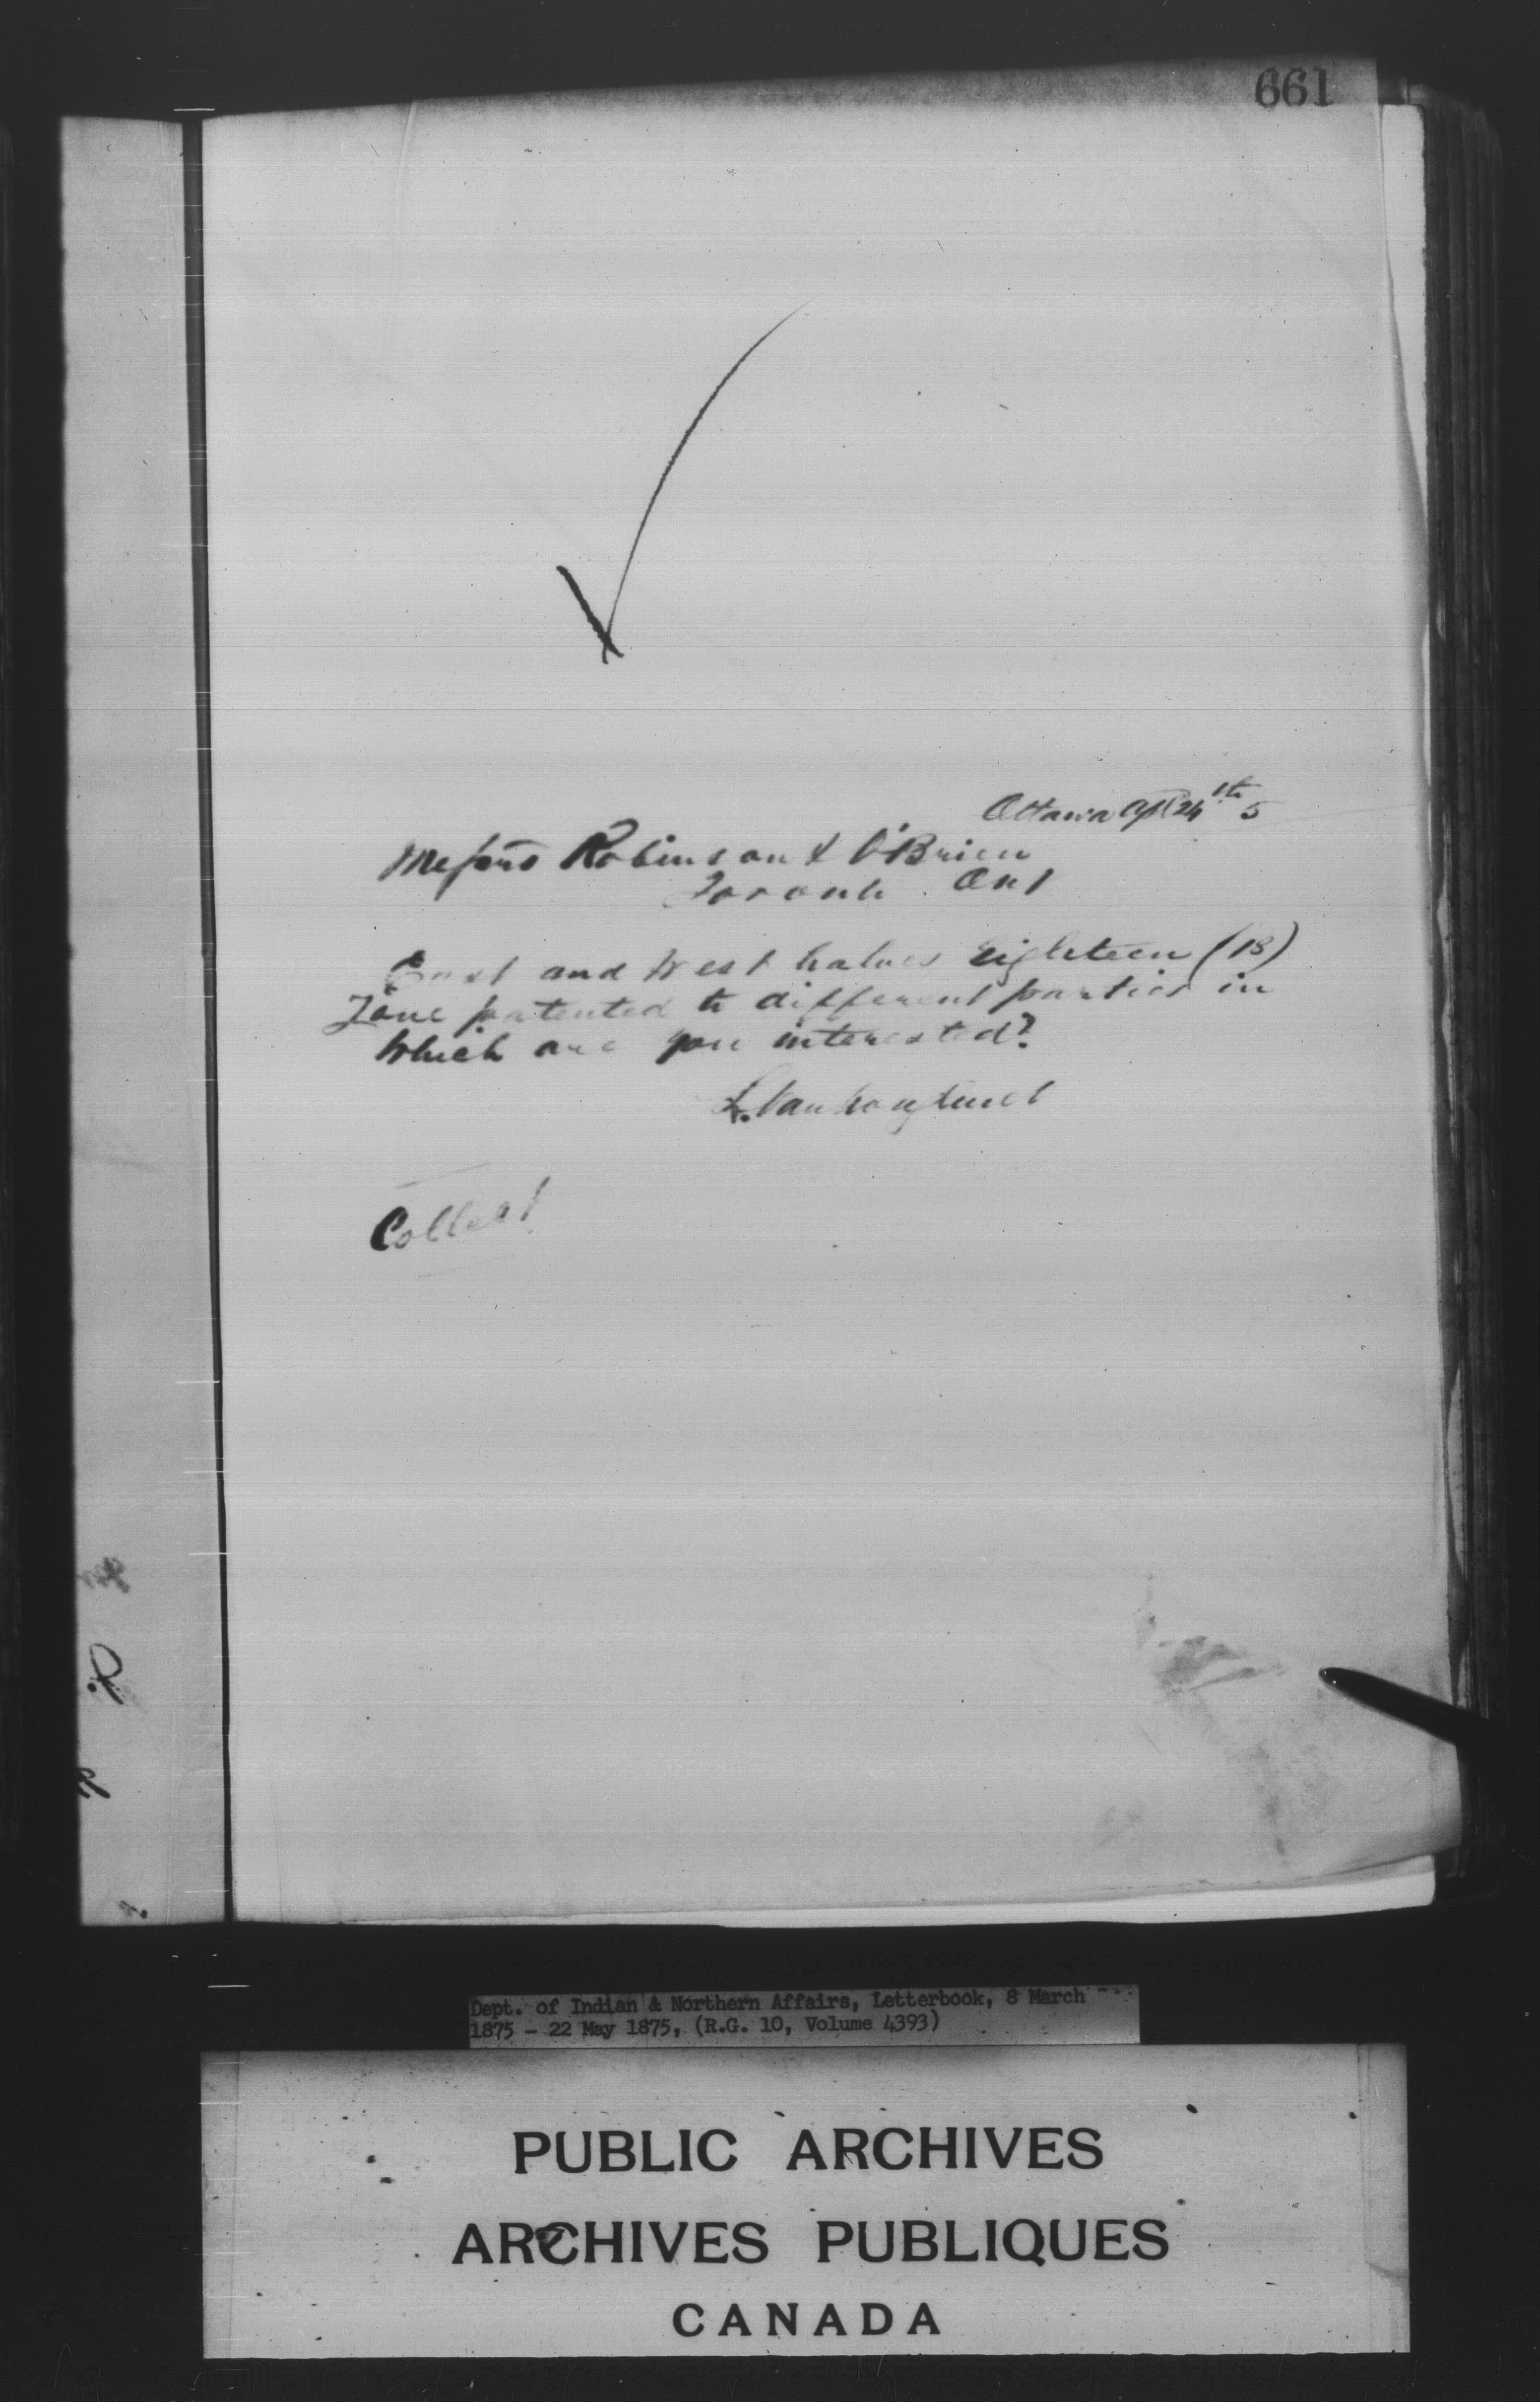 661
Ottawa Apl 24th 5
Messrs Robinson & O'Brien
Toronto. Ont
East and West halves Eighteen (18)
Zone patented to different parties in
which are you interested?
L. Vankoughnet
Collect
Dept. of Indian & Northern Affairs, Letterbook, 8 March
1875 - 22 May 1875, (R.G. 10, Volume 4393)
PUBLIC ARCHIVES
ARCHIVES PUBLIQUES
CANADA